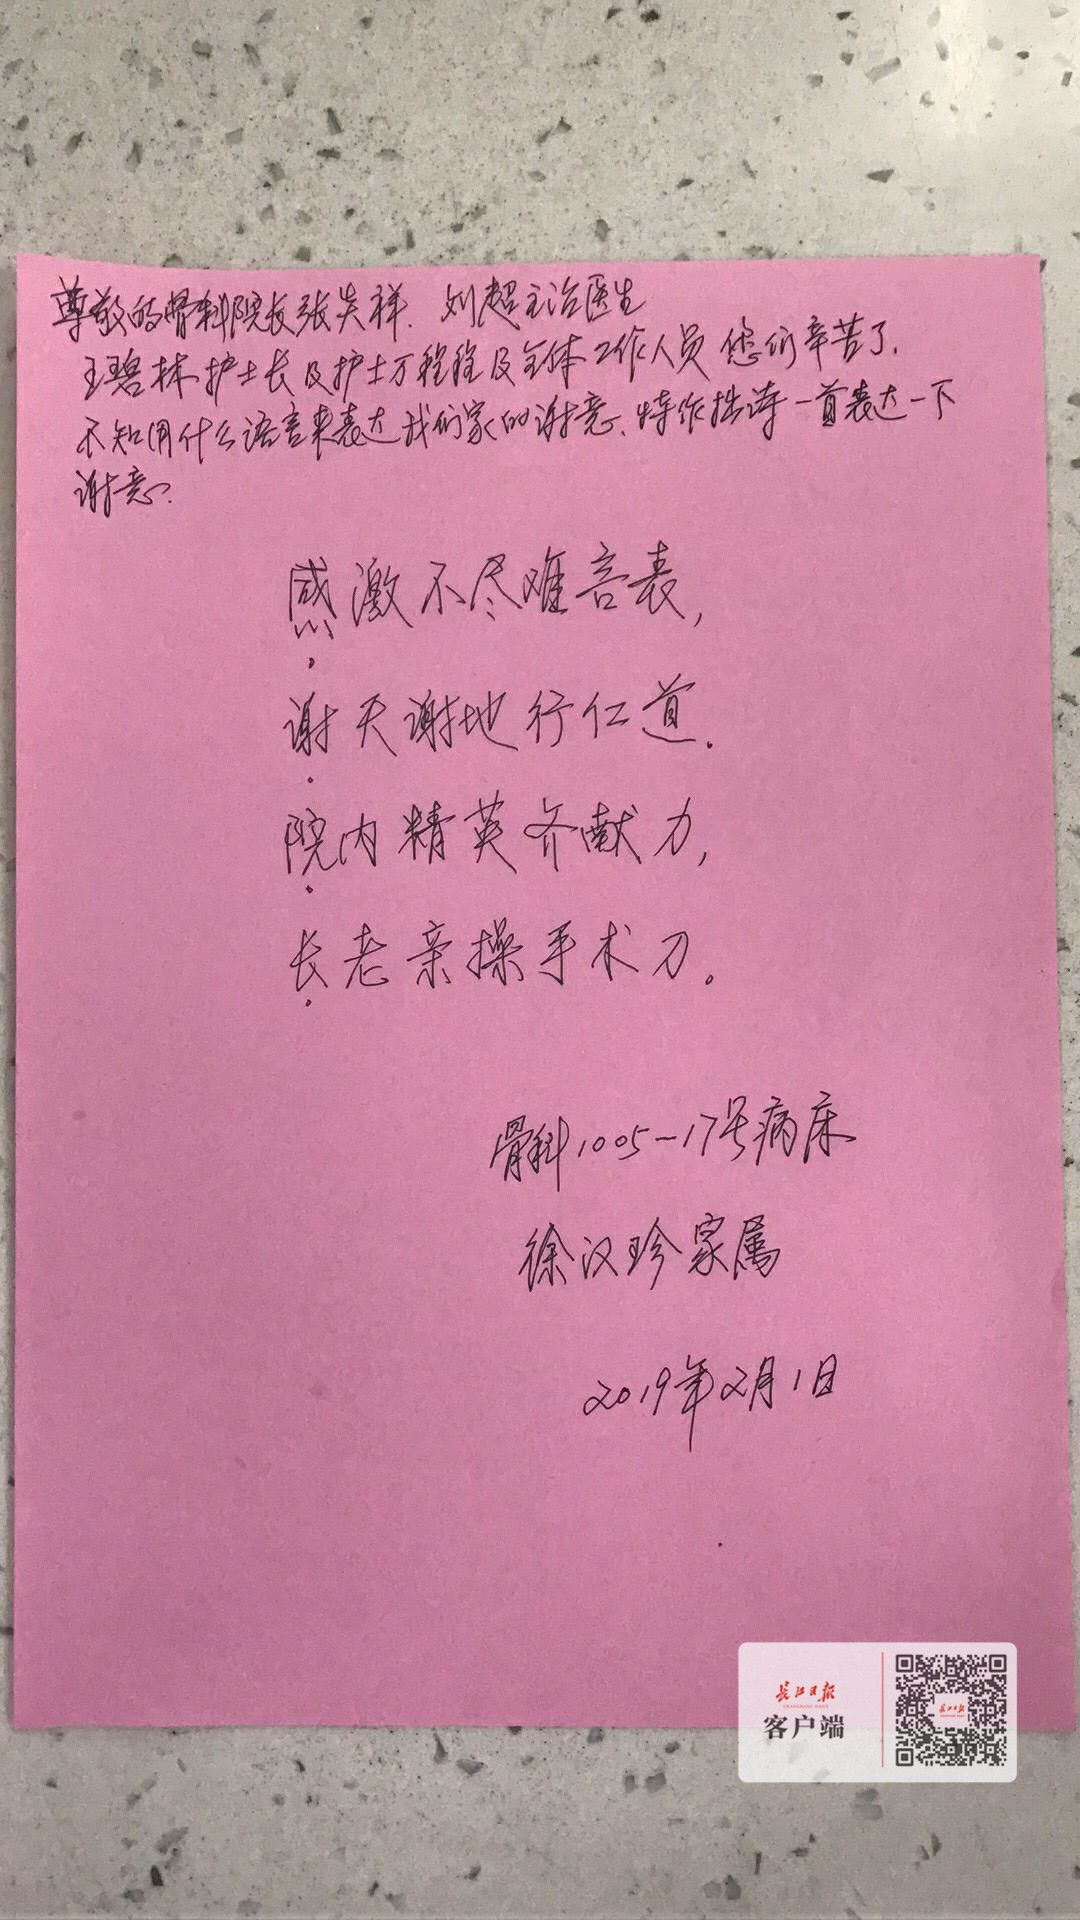 尊敬的骨科院长张英祥、刘超主治医生
王碧林护士长及护士万程程及全体工作人员您们辛苦了.
不知用什么语言来表达我们家的谢意、特作拙诗一首表达一下
谢意.
感激不尽难言表,
谢天谢地行仁道.
院内精英齐献力,
长老亲操手术刀。
骨科1005-17号病床
徐汉珍家属
2019年2月1日
长江日报
CHANGJIANG DAILY
客户端
长江日报